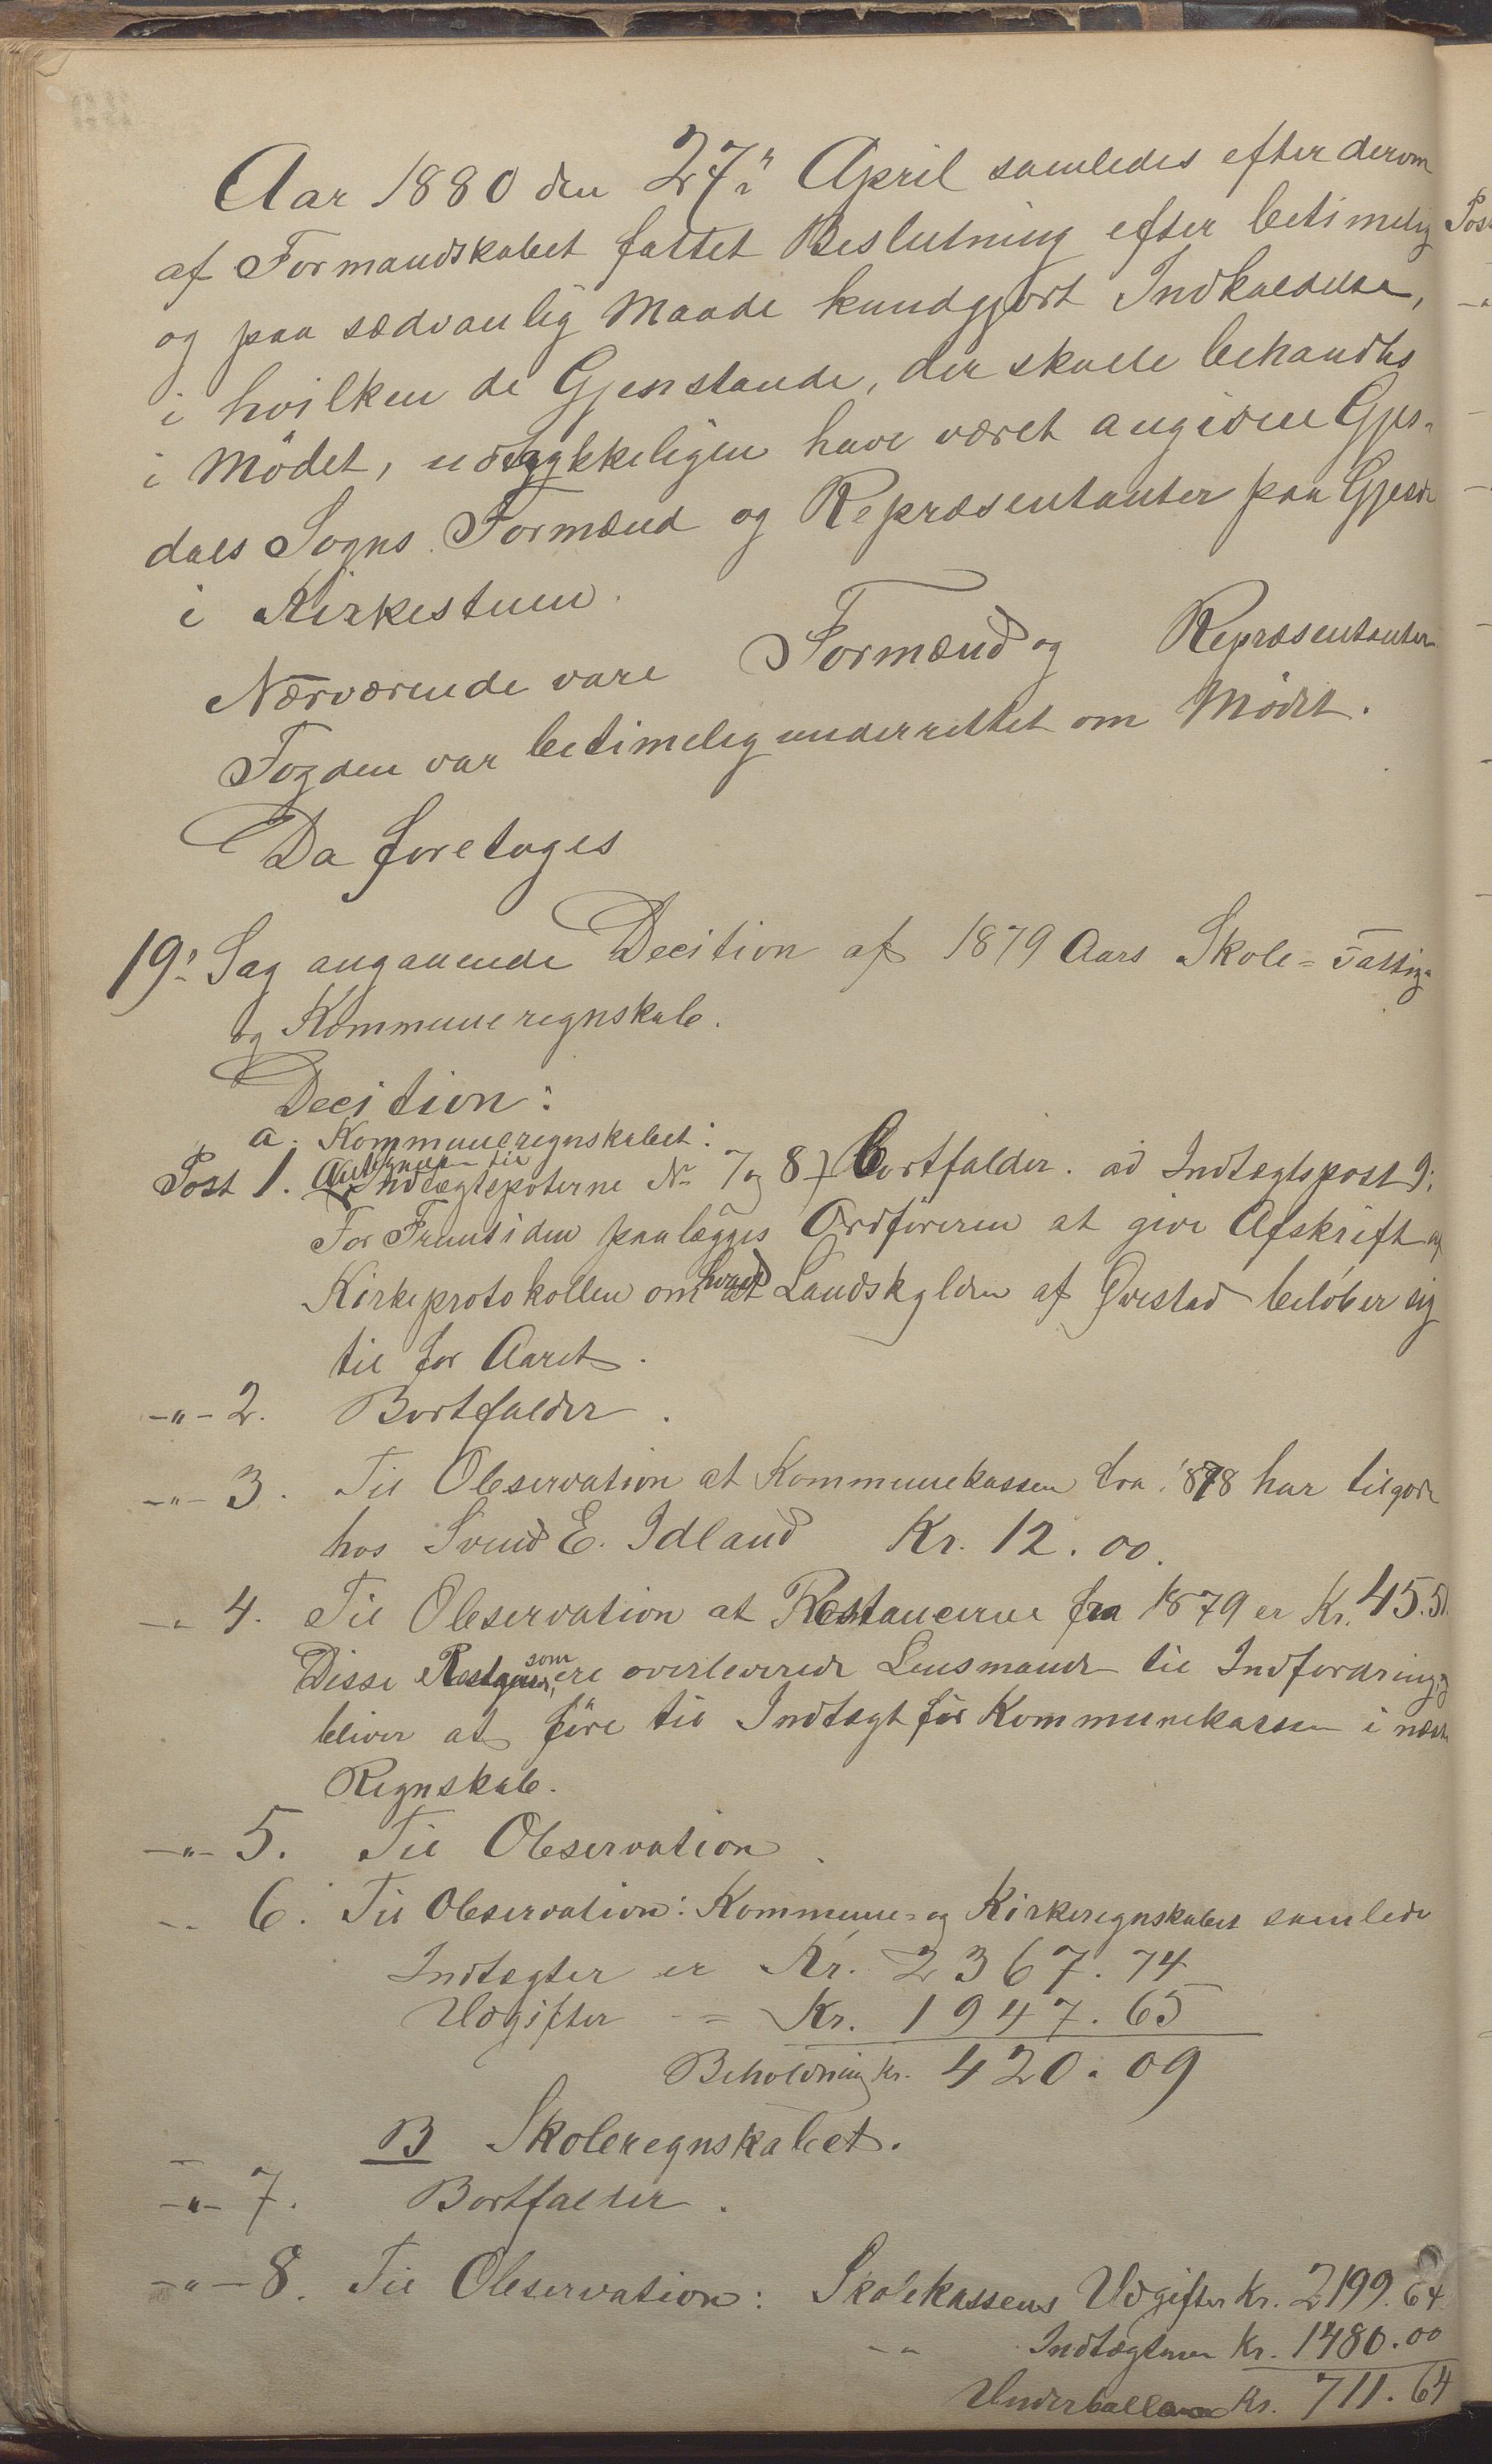 Aar 1880 den 27" April samledes efter derom
af Formandskabet fattet Beslutning efter betimelig
og paa sædvanlig Maade kundgjort Indkaldelse,
i hvilken de Gjenstande, der skulle behandles
i Mødet, udtrykkeligen have været angivne Gjes-
dals Sogns Formænd og Repræsentanter paa Gjesdal
i Kirkestuen.
Nærværende vare Formænd og Repræsentanter
Fogden var betimelig underrettet om Mødet.
Da foretoges
19: Sag angaaende Decition af 1879 Aars Skole= Fattig=
og Kommuneregnskab.
Decition:
a. Kommuneregnskabet:
Post 1. Antegnelsen til Indtægtsposterne No 7 og 8 bortfalder. ad Indtægtspost 9:
For Fremtiden paalægges Ordføreren at give Afskrift af
Kirkeprotokollen om hvad Landskylden af Øvestad beløber sig
til for Aaret.
-"- 2. Bortfalder.
-"- 3. Til Observation at Kommunekassen fra 1878 har tilgode
hos Svend E. Idland Kr. 12.00.
-"- 4. Til Observation at Restancerne fra 1879 er Kr. 45.51
Disse Restancer, som ere overleverede Lensmand til Indfordring,
bliver at føre til Indtægt for Kommunekassen i næste
Regnskab.
-"- 5. Til Observation.
-"- 6. Til Observation: Kommune- og Kirkeregnskabet samlede
Indtægter er Kr. 2367.74
Udgifter -=- Kr. 1947.65
Beholdning Kr. 420.09
B Skoleregnskabet.
-"- 7. Bortfalder.
-"- 8. Til Observation: Skolekassens Udgifter Kr. 2199.64
-"- Indtægter Kr. 1480.00
Underballance Kr. 711.64